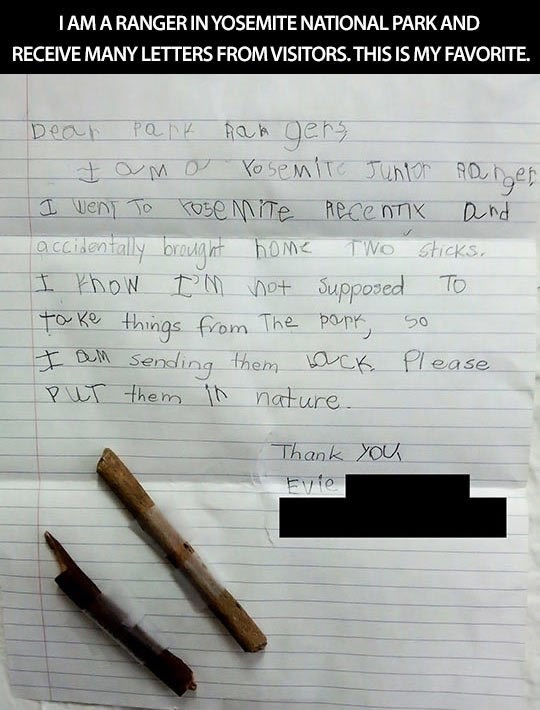 I AM A RANGER IN YOSEMITE NATIONAL PARK AND
RECEIVE MANY LETTERS FROM VISITORS. THIS IS MY FAVORITE.
Dear Park Rangers
I am a Yosemite Junior Ranger
I went to Yosemite Recently and
accidentally brought home two sticks.
I know I'm not supposed to
take things from the park, so
I am sending them back Please
put them in nature.
Thank you
Evie